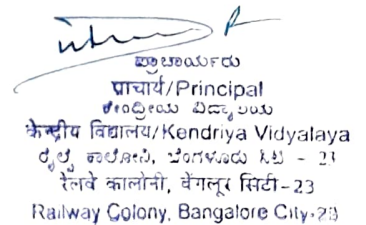 ಪ್ರಾಚಾರ್ಯರು
प्राचार्य/Principal
ಕೇಂದ್ರೀಯ ವಿದ್ಯಾಲಯ
केन्द्रीय विद्यालय/Kendriya Vidyalaya
ರೈಲ್ವೆ ಕಾಲೋನಿ, ಬೆಂಗಳೂರು ಸಿಟಿ - 23
रेलवे कालोनी, बेंगलूर सिटी-23
Railway Colony, Bangalore City-23